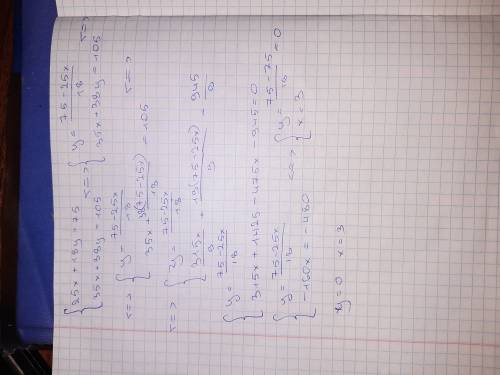 { 25x + 18y = 75
35x + 38y = 105 <=> { y = (75-25x)/18
35x + 38y = 105 <=>
<=> { y = (75-25x)/18
35x + 38(75-25x)/18 = 105 <=>
<=> { y = (75-25x)/18
315x/9 + 19(75-25x)/9 = 945/9
{ y = (75-25x)/18
315x + 1425 - 475x - 945 = 0
{ y = (75-25x)/18
-160x = -480 <=> { y = (75-75)/18 = 0
x = 3
y = 0 x = 3